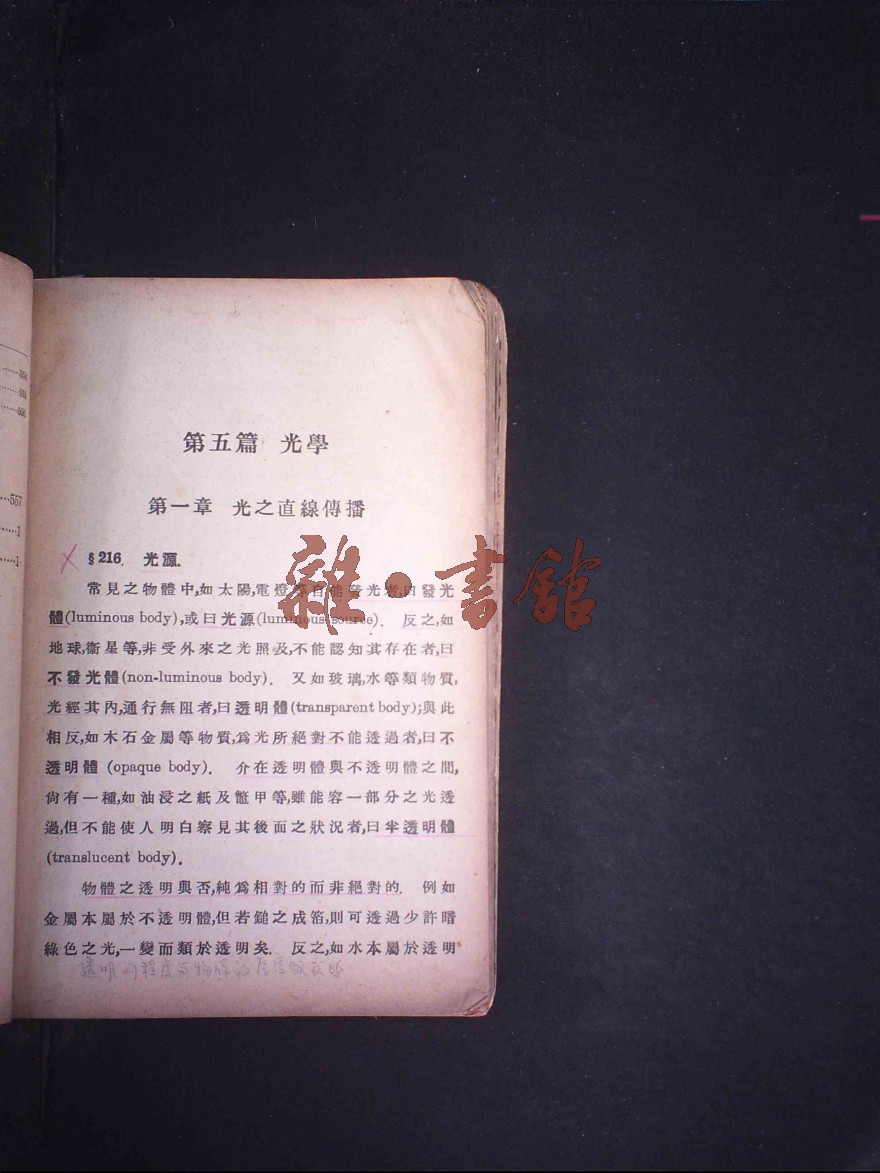 558
559
560
557
1
1
第五篇 光學
第一章 光之直線傳播
§216. 光源.
常見之物體中,如太陽,電燈等自能發光者,曰發光
體(luminous body),或曰光源(luminous source). 反之,如
地球,衞星等,非受外來之光照及,不能認知其存在者,曰
不發光體(non-luminous body). 又如玻璃,水等類物質,
光經其內,通行無阻者,曰透明體(transparent body);與此
相反,如木石金屬等物質,爲光所絕對不能透過者,曰不
透明體 (opaque body). 介在透明體與不透明體之間,
尙有一種,如油浸之紙及鼈甲等,雖能容一部分之光透
過,但不能使人明白察見其後面之狀況者,曰半透明體
(translucent body).
物體之透明與否,純爲相對的而非絕對的. 例如
金屬本屬於不透明體,但若鎚之成箔,則可透過少許暗
綠色之光,一變而類於透明矣. 反之,如水本屬於透明
透明的程度與物体的厚度
雜·書館